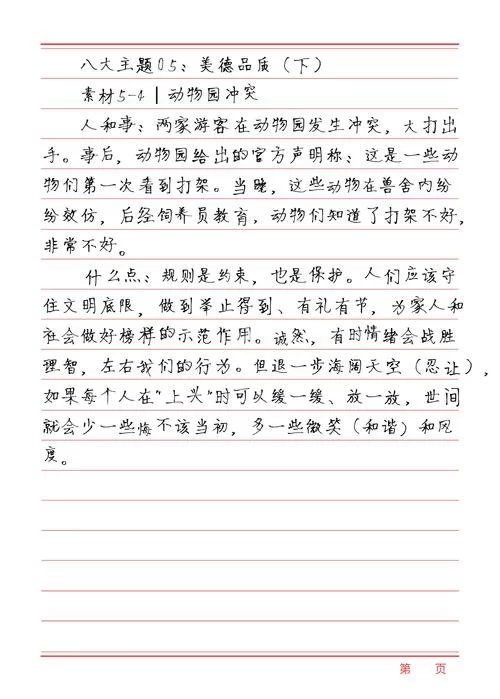 八大主题05：美德品质（下）
素材5-4｜动物园冲突
人和事：两家游客在动物园发生冲突，大打出
手。事后，动物园给出的官方声明称：这是一些动
物们第一次看到打架。当晚，这些动物在兽舍内纷
纷效仿，后经饲养员教育，动物们知道了打架不好，
非常不好。
什么点：规则是约束，也是保护。人们应该守
住文明底限，做到举止得到、有礼有节，为家人和
社会做好榜样的示范作用。诚然，有时情绪会战胜
理智，左右我们的行为。但退一步海阔天空（忍让），
如果每个人在"上头"时可以缓一缓、放一放，世间
就会少一些悔不该当初，多一些微笑（和谐）和风
度。
第 页